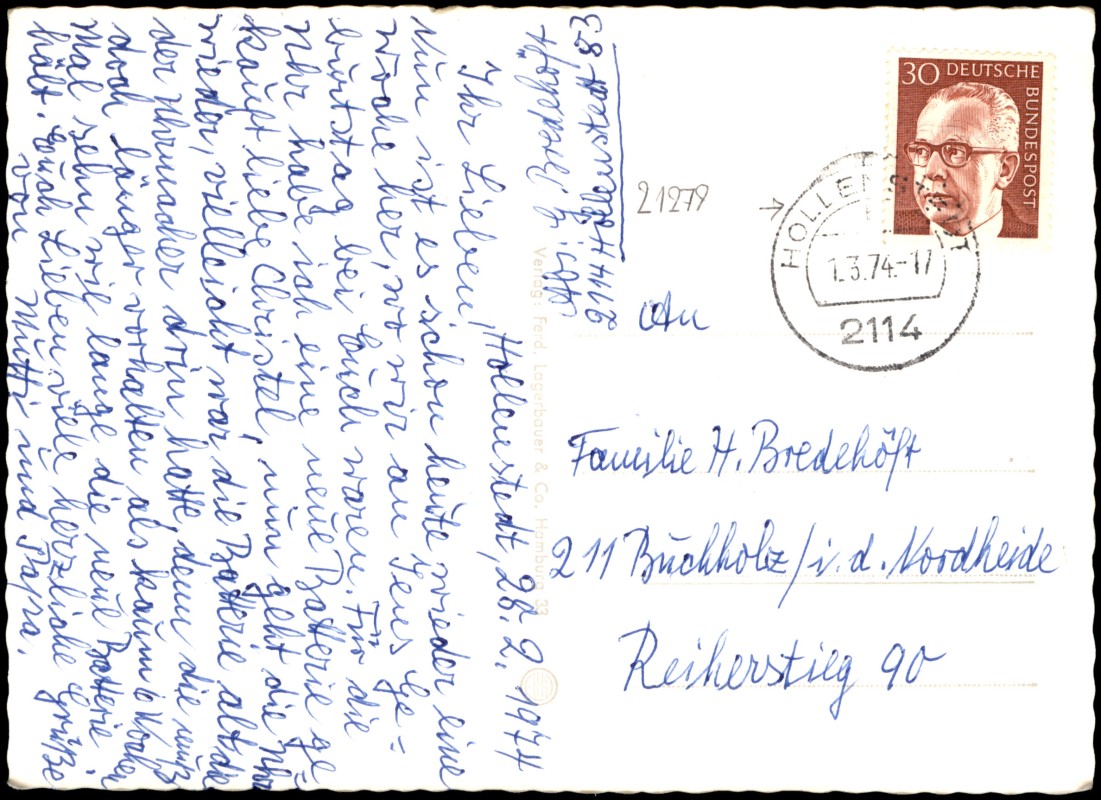 Hollenstedt, 28. 2. 1974
Ihr Lieben!
Nun ist es schon heute wieder eine
Woche her, wo wir an Jens Ge=
burtstag bei Euch waren. Für die
Uhr habe ich eine neue Batterie ge
kauft liebe Christel, nun geht die Uhr
wieder, vielleicht war die Batterie alt die
der Uhrmacher drin hatte, denn die muß
doch länger vorhalten als kaum 6 Wochen
Mal sehn wie lange die neue Batterie
hält. Euch Lieben viele herzliche Grüße
von Mutti und Papa.
2114 Hollenstedt 83
Verlag: Ferd. Lagerbauer & Co. Hamburg 33
21278
30 DEUTSCHE
BUNDESPOST
HOLLENSTEDT
1.3.74-17
2114
An
Familie H. Bredehöft
211 Buchholz/i. d. Nordheide
Reiherstieg 90